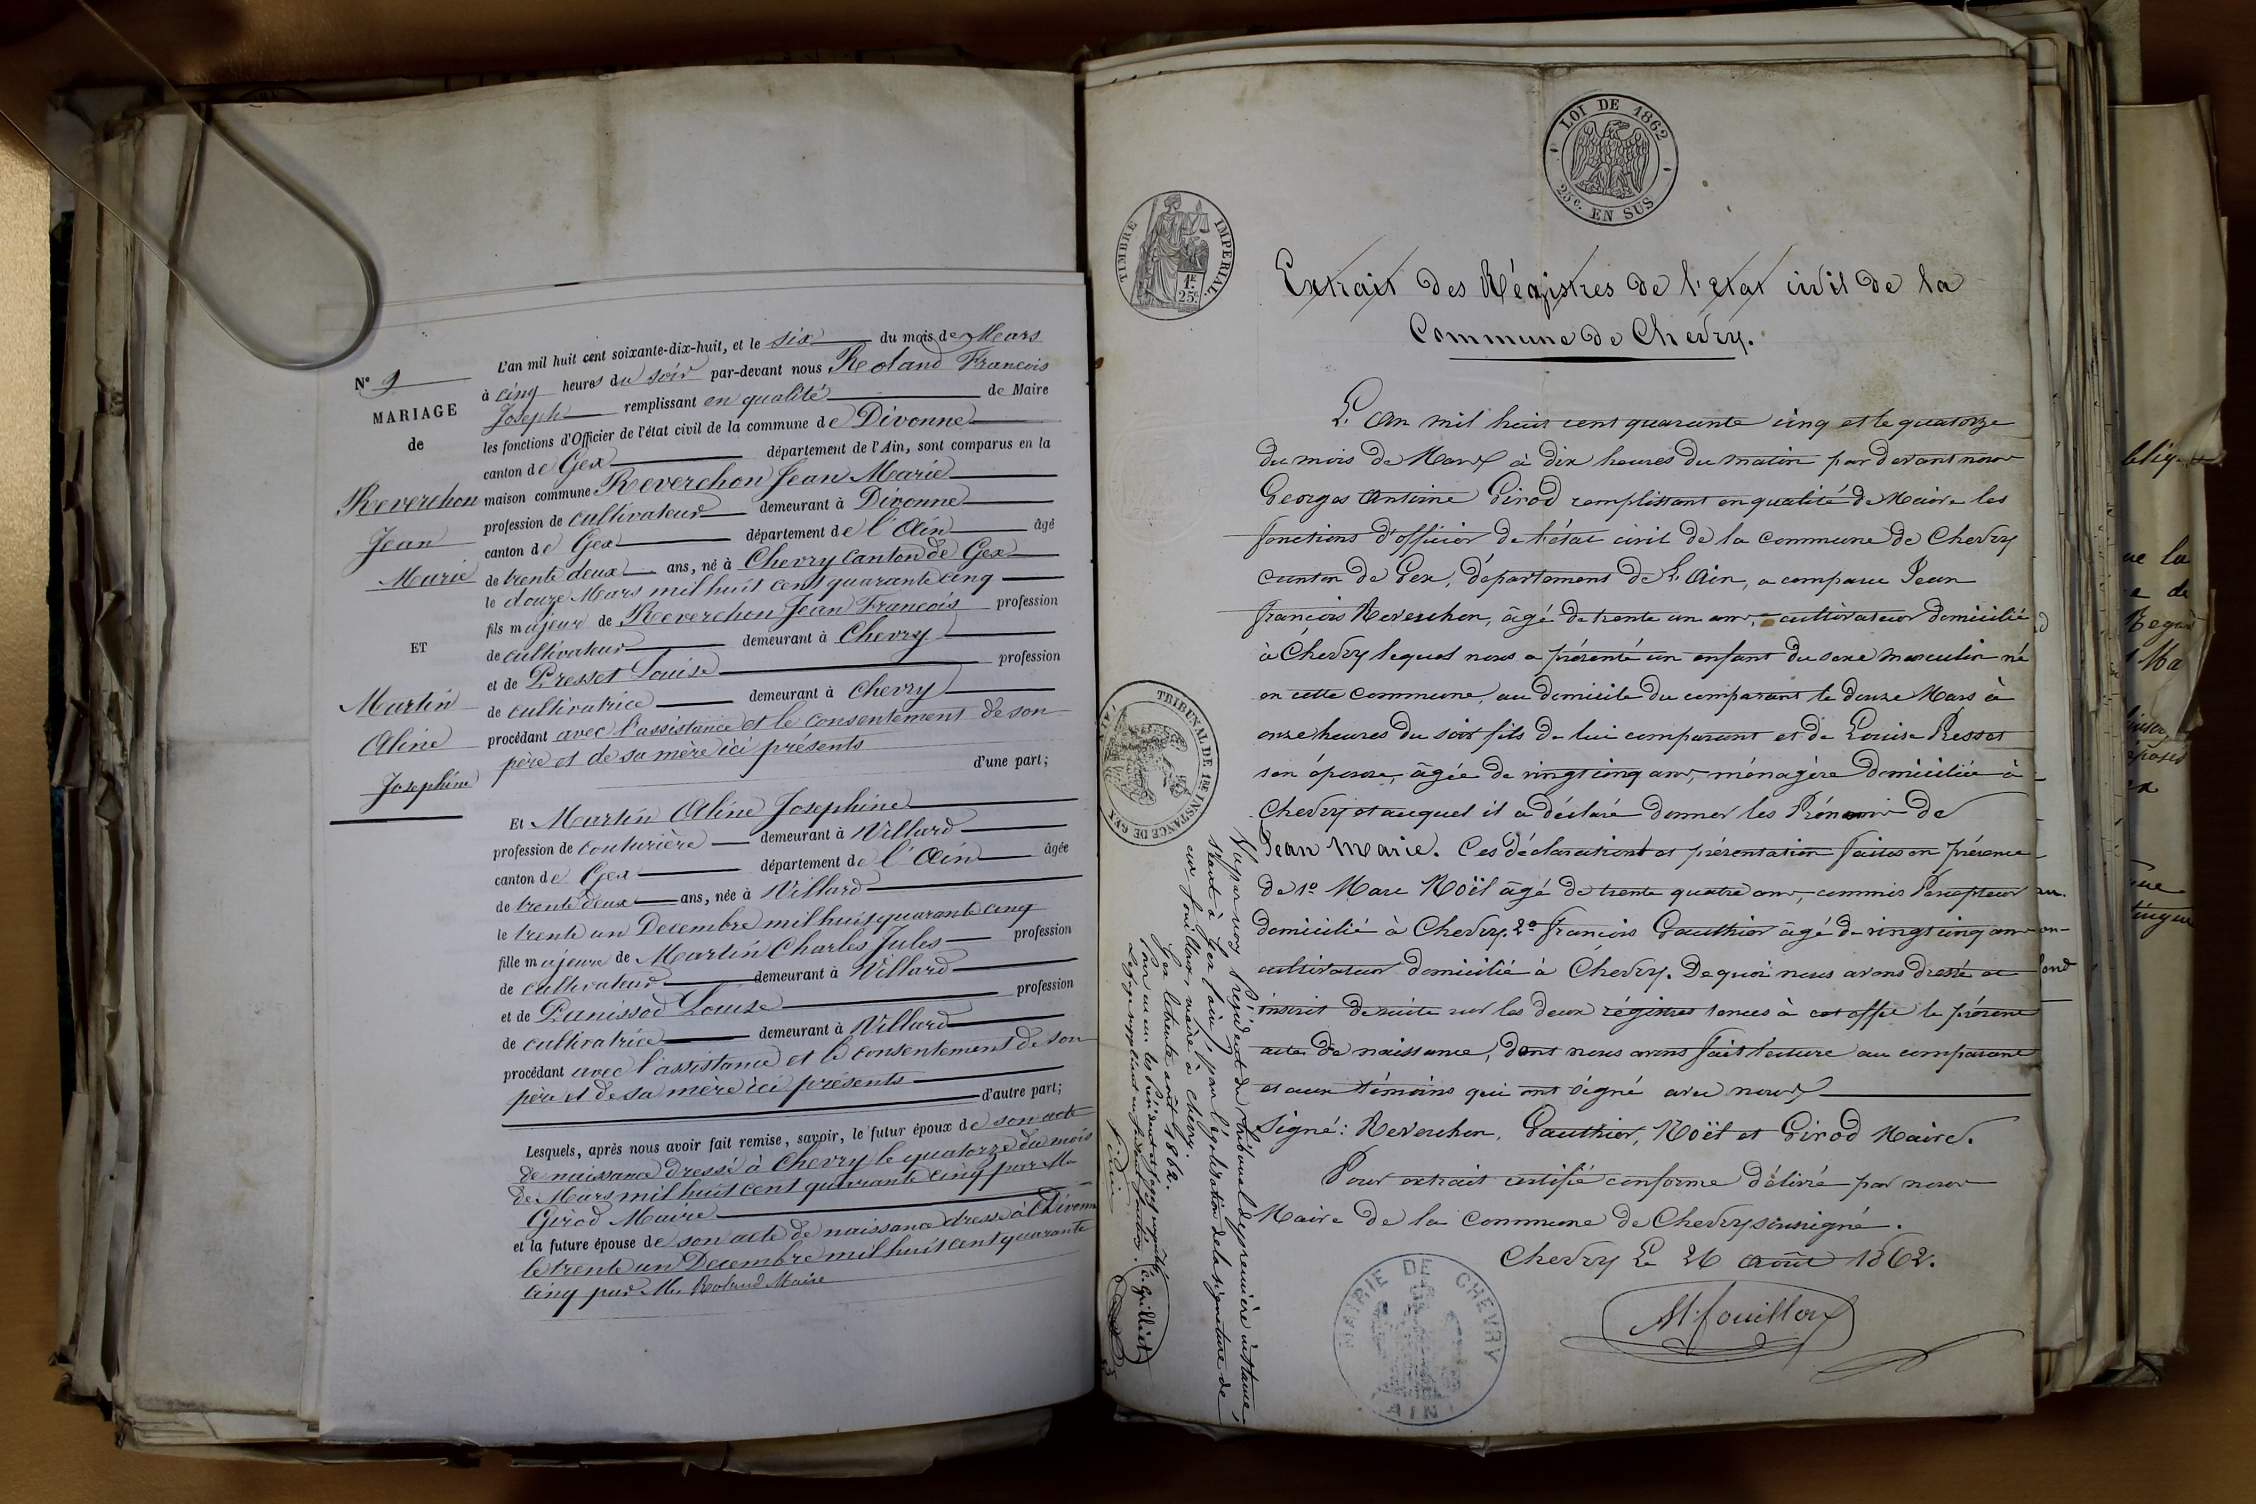 L'an mil huit cent soixante-dix-huit, et le six du mois de Mars
à cinq heures du soir par-devant nous Roland François
Joseph remplissant en qualité de Maire
les fonctions d'Officier de l'état civil de la commune de Divonne
canton de Gex département de l'Ain, sont comparus en la
maison commune Reverchon Jean Marie
profession de cultivateur demeurant à Divonne
canton de Gex département de l'Ain âgé
de trente deux ans, né à Chevry canton de Gex
le douze Mars mil huit cent quarante cinq
fils majeur de Reverchon Jean François profession
de cultivateur demeurant à Chevry
et de Presset Louise profession
de cultivatrice demeurant à Chevry
procédant avec l'assistance et le consentement de son
père et de sa mère ici présents
d'une part;
Et Martin Aline Josephine
profession de couturière demeurant à Villard
canton de Gex département de l'Ain âgée
de trente deux ans, née à Villard
le trente un Decembre mil huit quarante cinq
fille majeure de Martin Charles Jules profession
de cultivateur demeurant à Villard
et de Panissod Louise profession
de cultivatrice demeurant à Villard
procédant avec l'assistance et le consentement de son
père et de sa mère ici présents
d'autre part;
Lesquels, après nous avoir fait remise, savoir, le futur époux de son acte
de naissance dressé à Chevry le quatorze du mois
de Mars mil huit cent quarante cinq par Mr
Girod Maire
et la future épouse de son acte de naissance dressé à Divonne
le trente un Decembre mil huit cent quarante
cinq par Mr Roland Maire
N° 9
MARIAGE
de
Reverchon
Jean
Marie
ET
Martin
Aline
Josephine
LOI DE 1862
25c. EN SUS
TIMBRE IMPERIAL
1F
25c
Extrait des Régistres de l'état civil de la
Commune de Chevry.
L'an mil huit cent quarante cinq et le quatorze
du mois de Mars à dix heures du matin par devant nous
Georges Antoine Girod remplissant en qualité de Maire les
fonctions d'officier de l'état civil de la commune de Chevry
canton de Gex, département de L'Ain, a comparu Jean
François Reverchon, âgé de trente un ans, cultivateur domicilié
à Chevry lequel nous a présenté un enfant du sexe masculin né
en cette commune, au domicile du comparant le douze Mars à
onze heures du soir fils de lui comparant et de Louise Presset
son épouse, âgée de vingt cinq ans, ménagère domiciliée à
Chevry et auquel il a déclaré donner les Prénoms de
Jean Marie. Ces déclaration et présentation faites en présence
de 1° Marc Noël âgé de trente quatre ans, commis Percepteur
domicilié à Chevry. 2° François Gauthier âgé de vingt cinq ans
cultivateur domicilié à Chevry. De quoi nous avons dressé et
inscrit de suite sur les deux régistres tenus à cet effet le présent
acte de naissance, dont nous avons fait lecture au comparant
et aux témoins qui ont signé avec nous
Signé: Reverchon, Gauthier, Noël et Girod Maire.
Pour extrait certifié conforme délivré par nous
Maire de la commune de Chevry soussigné.
Chevry Le 26 Août 1862.
M. fouilloux
MAIRIE DE CHEVRY
AIN
TRIBUNAL DE 1RE INSTANCE DE GEX
Vu par nous Président du tribunal de première instance,
séant à Gex (ain), pour légalisation de la signature de
Mr fouilloux, maire à Chevry.
Gex le trente août 1862.
C. Grilliet
blig
ue la
de
Ma